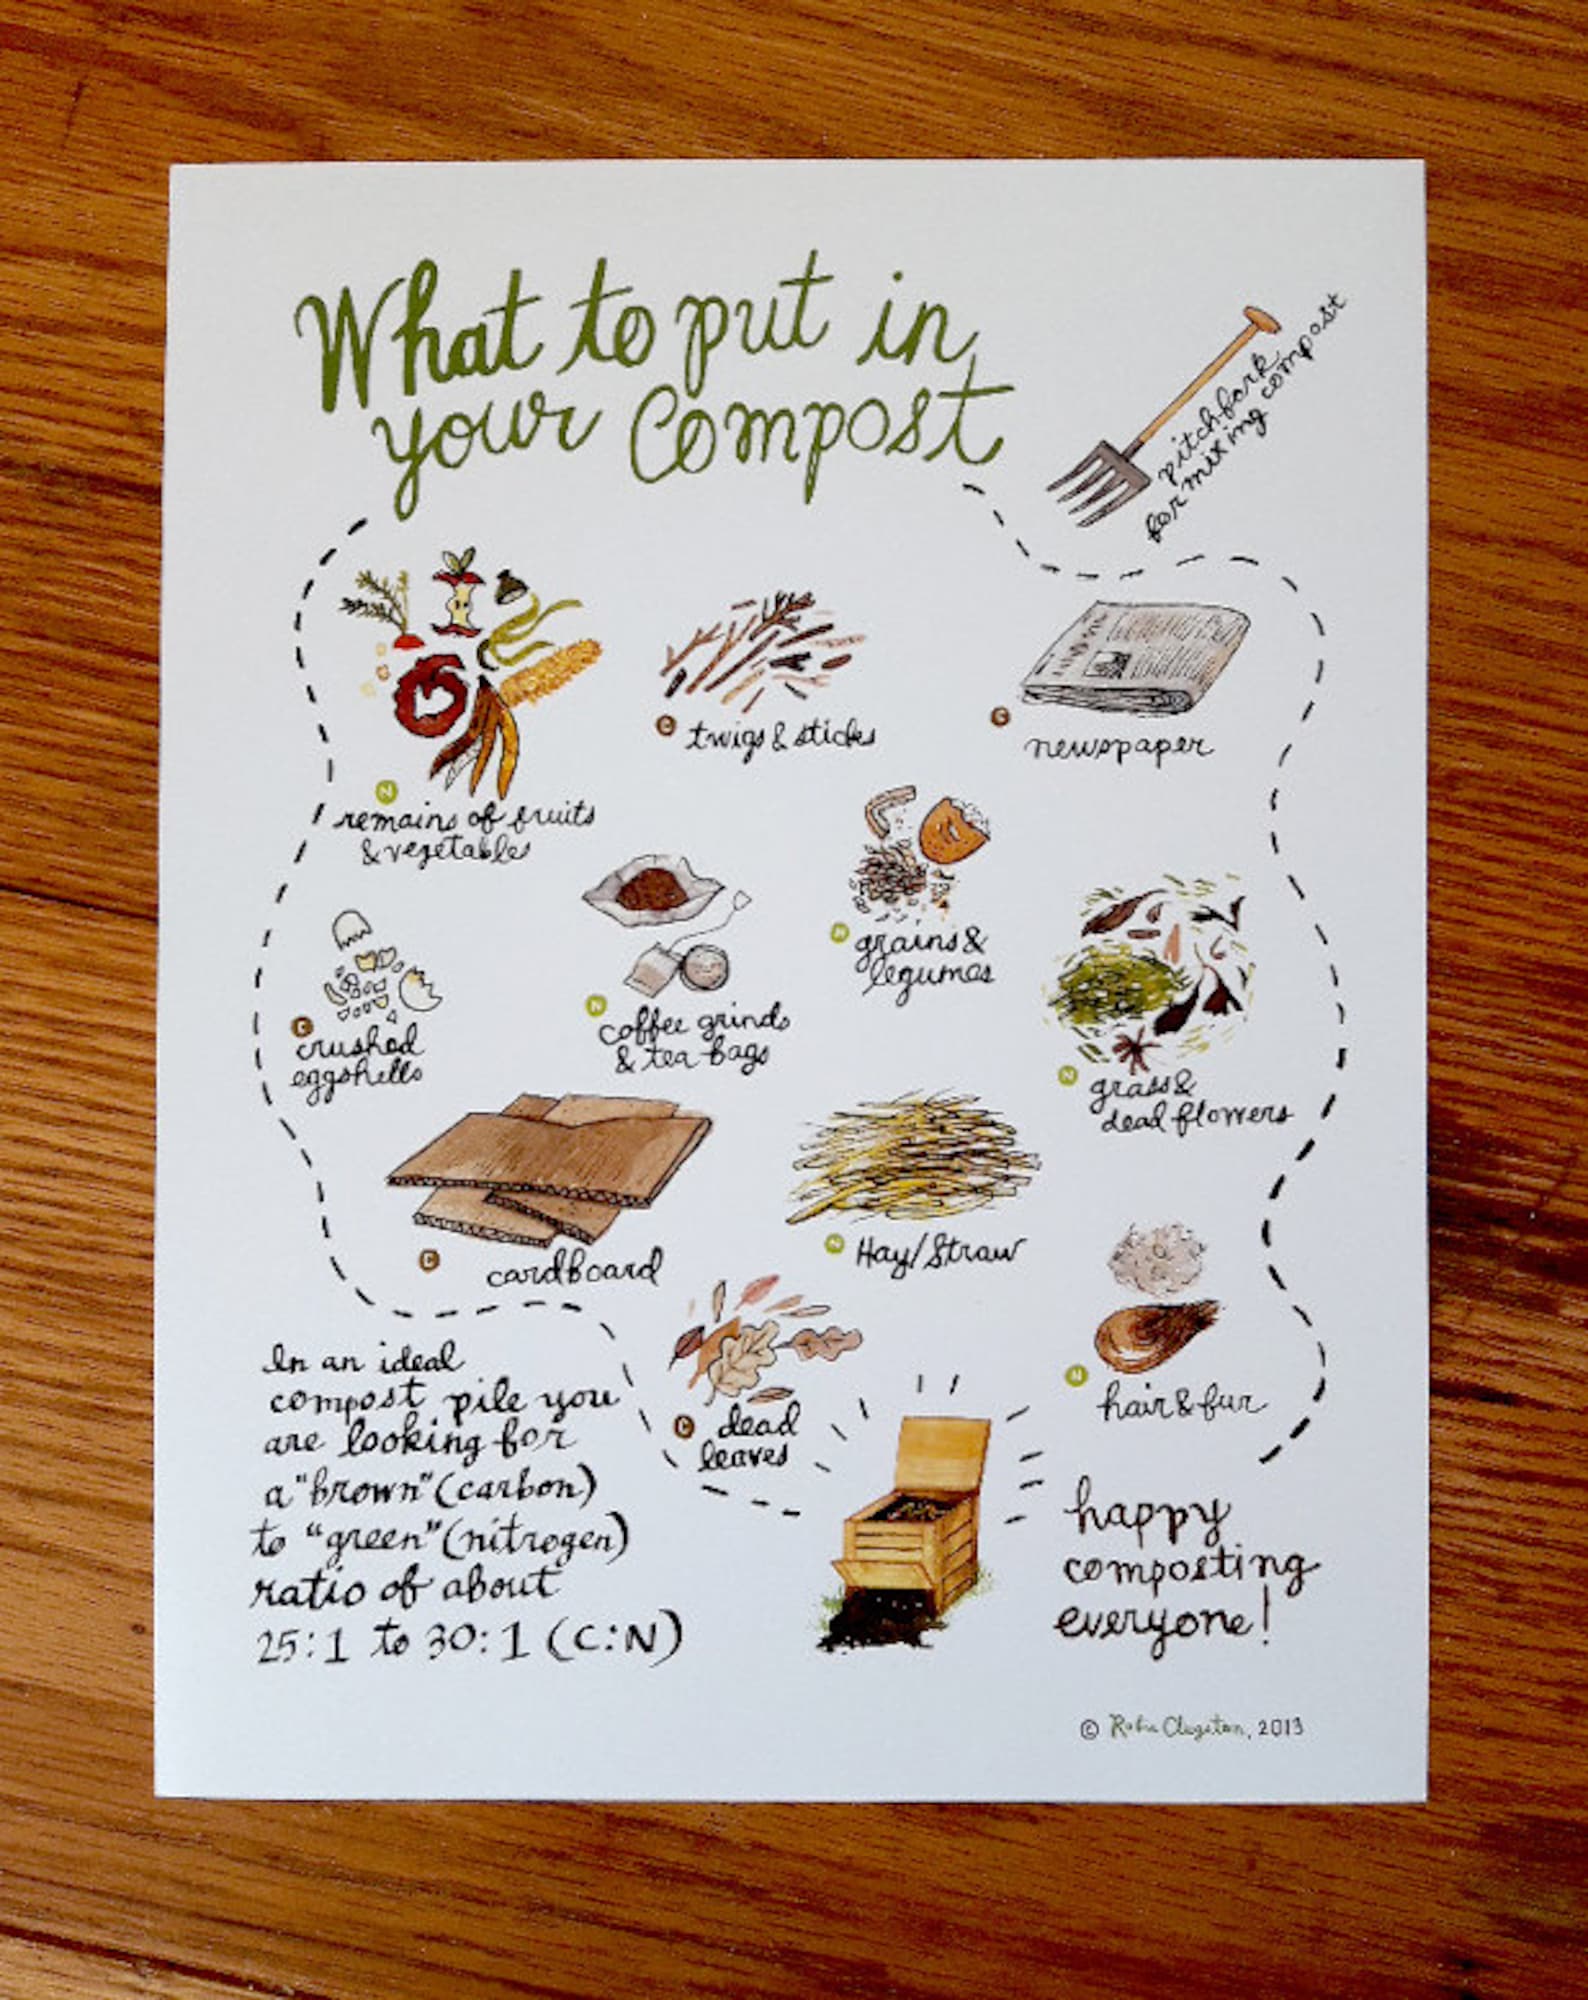 What to put in
your Compost
pitchfork
for mixing compost
N
remains of fruits
& vegetables
C
twigs & sticks
C
newspaper
C
crushed
eggshells
N
coffee grinds
& tea bags
N
grains &
legumes
N
grass &
dead flowers
C
cardboard
N
Hay/Straw
C
dead
leaves
N
hair & fur
In an ideal
compost pile you
are looking for
a "brown" (carbon)
to "green" (nitrogen)
ratio of about
25:1 to 30:1 (C:N)
happy
composting
everyone!
© 2013